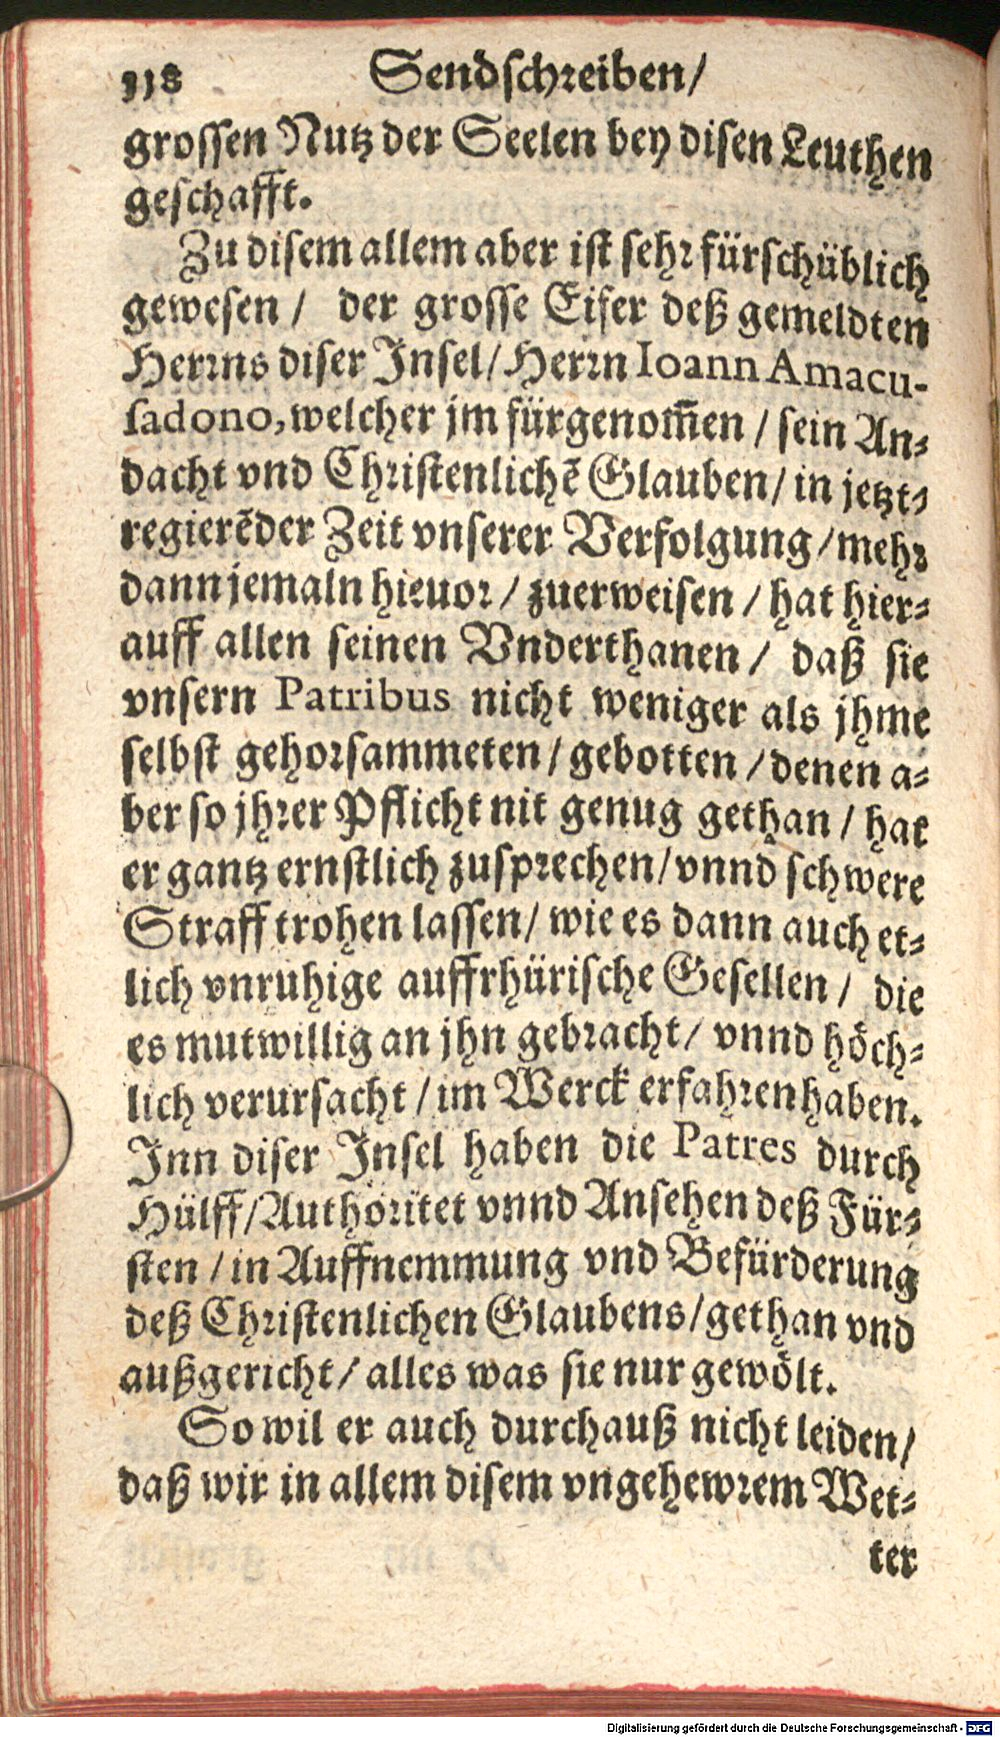 118 Sendschreiben/
grossen Nutz der Seelen bey disen Leuthen
geschafft.
Zu disem allem aber ist sehr fürschüblich
gewesen / der grosse Eifer deß gemeldten
Herrns diser Insel/ Herrn Ioann Amacu-
sadono, welcher jm fürgenom̃en / sein An-
dacht vnd Christenlichẽ Glauben/ in jetzt-
regierẽder Zeit vnserer Verfolgung/mehr
dann jemaln hieuor / zuerweisen / hat hier-
auff allen seinen Vnderthanen / daß sie
vnsern Patribus nicht weniger als jhme
selbst gehorsammeten/gebotten/denen a-
ber so jhrer Pflicht nit genug gethan / hat
er gantz ernstlich zusprechen/vnnd schwere
Straff trohen lassen/ wie es dann auch et-
lich vnruhige auffrhürische Gesellen / die
es mutwillig an jhn gebracht/ vnnd höch-
lich verursacht / im Werck erfahren haben.
Inn diser Insel haben die Patres durch
Hülff/Authoritet vnnd Ansehen deß Für-
sten / in Auffnemmung vnd Befürderung
deß Christenlichen Glaubens/gethan vnd
außgericht/ alles was sie nur gewölt.
So wil er auch durchauß nicht leiden/
daß wir in allem disem vngehewrem Wet-
ter
Digitalisierung gefördert durch die Deutsche Forschungsgemeinschaft - DFG